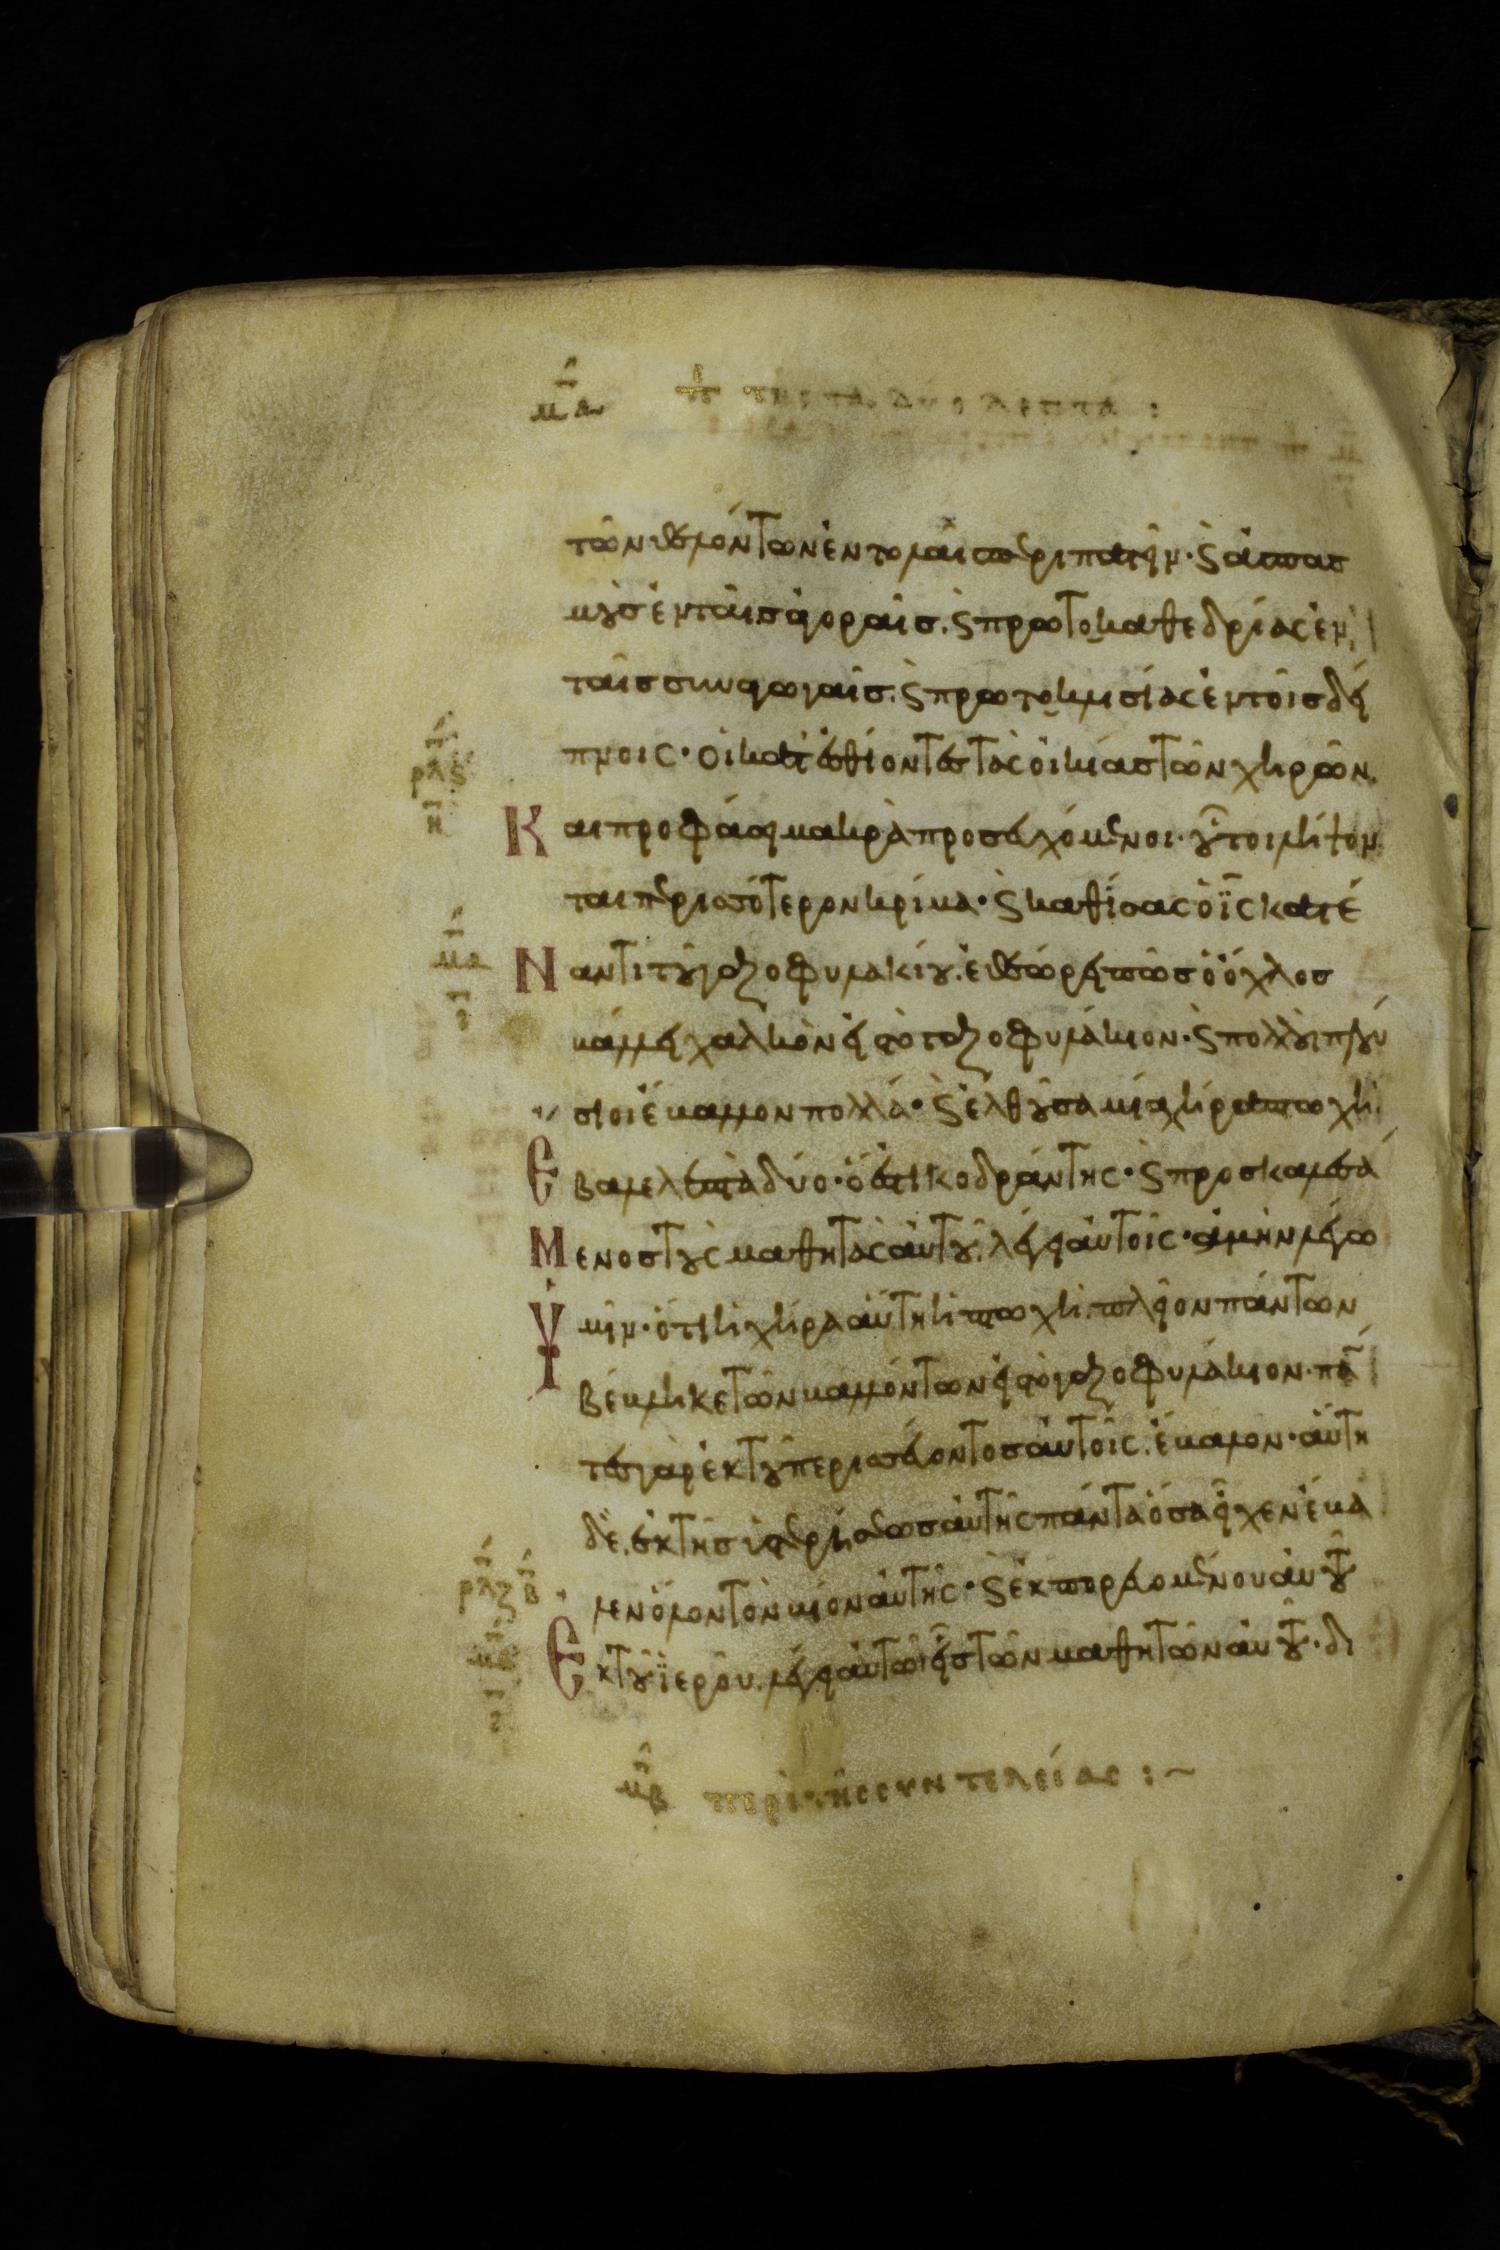 μα + της τα δύο λεπτά :
τῶν θελόντων ἐν στολαῖς περιπατεῖν· ϗ ἀσπασ
μοὺς ἐν ταῖς ἀγοραῖς. ϗ πρωτοκαθεδρίας ἐν
ταῖς συναγωγαῖς. ϗ πρωτοκλισίας ἐν τοῖς δεί
πνοις· οἱ κατεσθίοντες τὰς οἰκίας τῶν χηρῶν.
ρλς
η
Και προφάσει μακρὰ προσευχόμενοι· οὗτοι λήψον
ται περισσότερον κρίμα· ϗ καθίσας ὁ ις κατέ
μα
Ναντι τοῦ γαζοφυλακίου. ἐθεώρει πῶς ὁ ὄχλος
βάλλει χαλκὸν εἰς τὸ γαζοφυλάκιον· ϗ πολλοὶ πλού
σιοι ἔβαλλον πολλά· ϗ ἐλθοῦσα μία χήρα πτωχὴ.
Εβαλε λεπτὰ δύο· ὅ ἐστι κοδράντης· ϗ προσκαλεσά
Μενος τοὺς μαθητὰς αὐτοῦ, λέγει αὐτοῖς· ἀμὴν λέγω
Ὑμῖν· ὅτι ἡ χήρα αὕτη ἡ πτωχὴ. πλεῖον πάντων
βέβληκε τῶν βαλλόντων εἰς τὸ γαζοφυλάκιον· πά
τες γὰρ ἐκ τοῦ περισσεύοντος αὐτοῖς. ἔβαλον· αὕτη
δὲ. ἐκ τῆς ὑστερήσεως αὐτῆς πάντα ὅσα εἶχεν ἔβα
λεν ὅλον τὸν βίον αὐτῆς· ϗ ἐκπορευομένου αὐτοῦ
ρλζ β
μβ
Εκ τοῦ ἱεροῦ. λέγει αὐτῶ εἷς τῶν μαθητῶν αὐτοῦ· δι
μβ περὶ τῆς συντελείας : ~